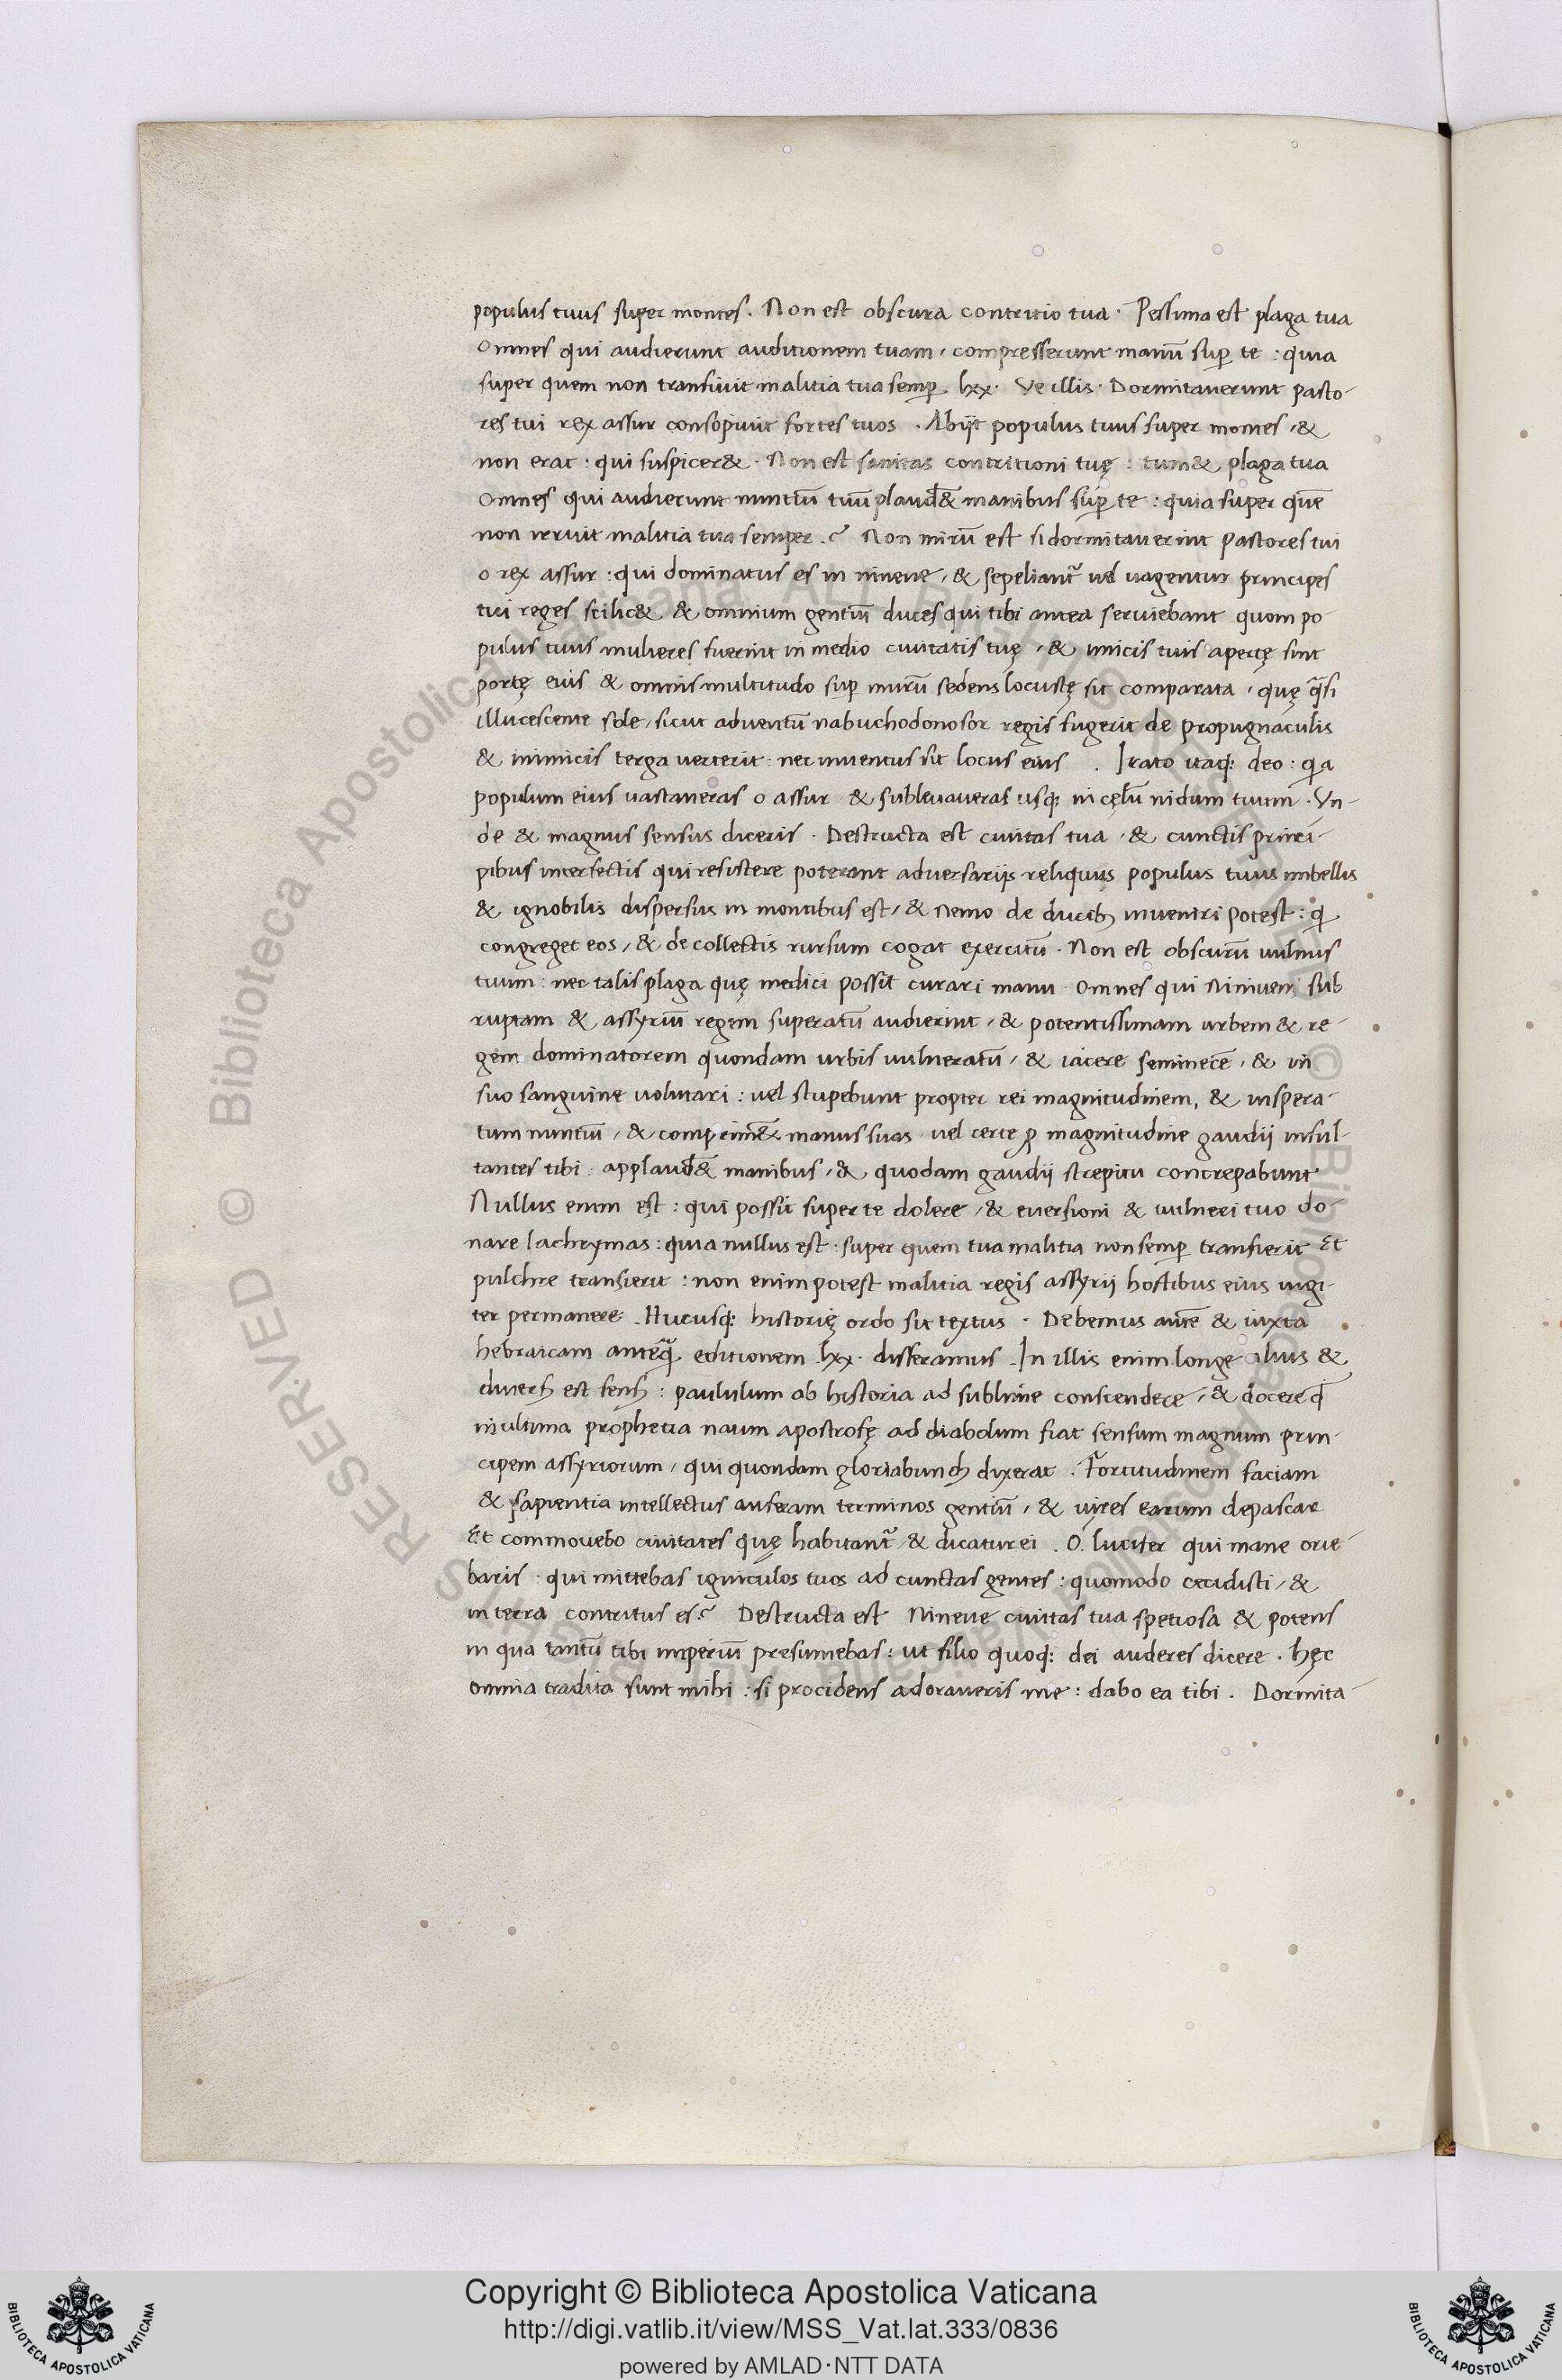 populus tuus super montes. Non est obscura contritio tua · Pessima est plaga tua
Omnes qui audierunt auditionem tuam, compresserunt manū suꝑ te : quia
super quem non transiuit malitia tua semꝑ. lxx. Ve illis · Dormitauerunt pasto-
res tui rex assur consopiuit fortes tuos . Abijt populus tuus super montes, &
non erat : qui suspicer& · Non est sanitas contritioni tuę : tum& plaga tua
Omnes qui audierunt nuntiū tuū plaud& manibus suꝑ te : quia super quē
non irruit malitia tua semper.? Non mirū est si dormitauerint pastores tui
o rex assur : qui dominatus es in nineue, & sepeliant᷑ uel uagentur principes
tui reges scilic& & omnium gentiū duces qui tibi antea seruiebant quom po
pulus tuus mulieres fuerint in medio ciuitatis tuę, & imicis tuis apertę sint
portę eius & omnis multitudo suꝑ murū sedens locustę sit comparata, quę q̃si
illucescente sole, sicut aduentū nabuchodonosor regis fugerit de propugnaculis
& inimicis terga uerterit : nec inuentus sit locus eius . Irato itaq; deo : q a
populum eius uastaueras o assur & subleuaueras usq; in cęlū nidum tuum . Vn-
de & magnus sensus diceris . Destructa est ciuitas tua, & cunctis princi-
pibus interfectis qui resistere poterant aduersarijs reliquus populus tuus imbellis
& ignobilis dispersus in montibus est, & nemo de ducib; inueniri potest : q
congreget eos, & de collectis rursum cogat exercitū . Non est obscurū uulnus
tuum : nec talis plaga quę medici possit curari manu . Omnes qui Niniuem sub
ruptam & assyriū regem superatū audierint, & potentissimam urbem & re-
gem dominatorem quondam urbis uulneratū, & iacere seminecē, & in
suo sanguine uolutari : uel stupebunt propter rei magnitudinem, & inspera-
tum nuntiū, & comprim& manus suas uel certe ꝓ magnitudine gaudij insul-
tantes tibi : applaud& manibus, & quodam gaudij strepitu concrepabunt
Nullus enim est : qui possit super te dolere, & euersioni & uulneri tuo do-
nare lachrymas : quia nullus est : super quem tua malitia non semꝑ transierit Et
pulchre transierit : non enim potest malitia regis assyrij hostibus eius iugi-
ter permanere . Hucusq; historię ordo sit textus . Debemus autē & iuxta
hebraicam anteq̃ editionem lxx. disseramus . In illis enim longe alius &
diuers; est sens; : paululum ab historia ad sublime conscendere, & docere q
in ultima prophetia naum apostrofę ad diabolum fiat sensum magnum prin-
cipem assyriorum, qui quondam gloriabund; dixerat . Fortitudinem faciam
& sapientia intellectus auferam terminos gentiū, & uires earum depascar
Et commouebo ciuitates quę habitant᷑, & dicatur ei . O lucifer qui mane orie-
baris : qui mittebas igniculos tuos ad cunctas gentes : quomodo cecidisti, &
in terra contritus es.? Destructa est Nineue ciuitas tua spetiosa & potens
in qua tantū tibi imperiū presumebas : ut filio quoq; dei auderes dicere . hęc
omnia tradita sunt mihi : si procidens adoraueris me : dabo ea tibi . Dormita-
Copyright © Biblioteca Apostolica Vaticana
http://digi.vatlib.it/view/MSS_Vat.lat.333/0836
powered by AMLAD·NTT DATA